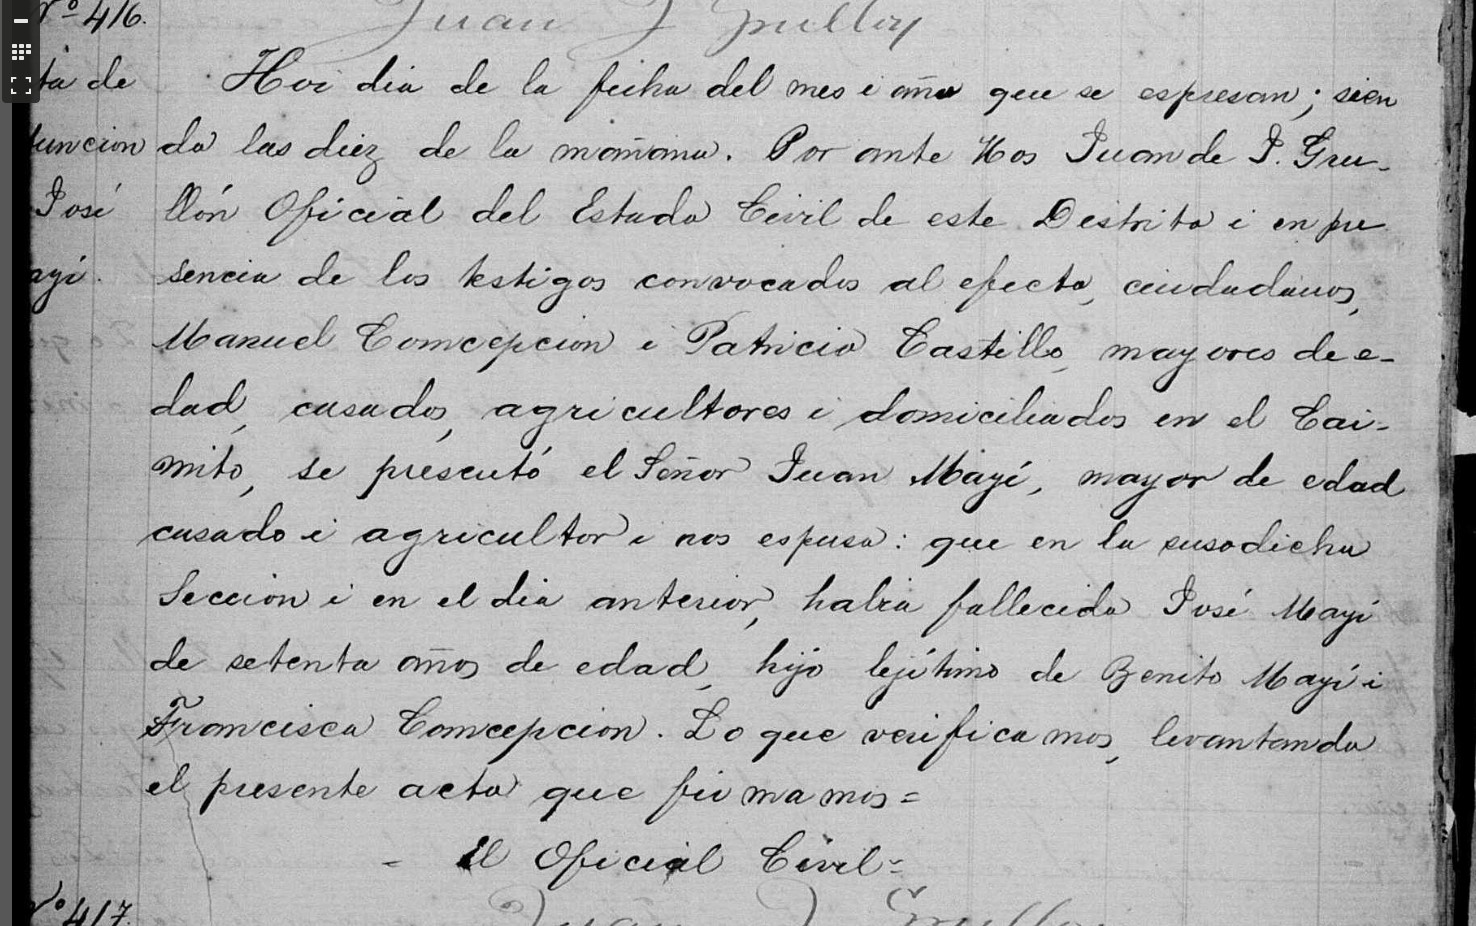 Nº 416.
Juan J Grullon
ta de
Hoi dia de la fecha del mes i año que se espresan; sien
funcion
do las diez de la mañana. Por ante Nos Juan de J. Gru-
José
llón Oficial del Estado Civil de este Distrito i en pre
ayí.
sencia de los testigos convocados al efecto, ciudadanos,
Manuel Comcepcion i Patricio Castillo, mayores de e-
dad, casados, agricultores i domiciliados en el Cai-
mito, se presentó el Señor Juan Mayí, mayor de edad
casado i agricultor i nos espuso: que en la susodicha
Seccion i en el dia anterior, habia fallecido José Mayí
de setenta años de edad, hijo lejítimo de Benito Mayí i
Francisca Comcepcion. Lo que verificamos, levantando
el presente acto que firmamos=
- El Oficial Civil=
Nº 417.
Juan J Grullon